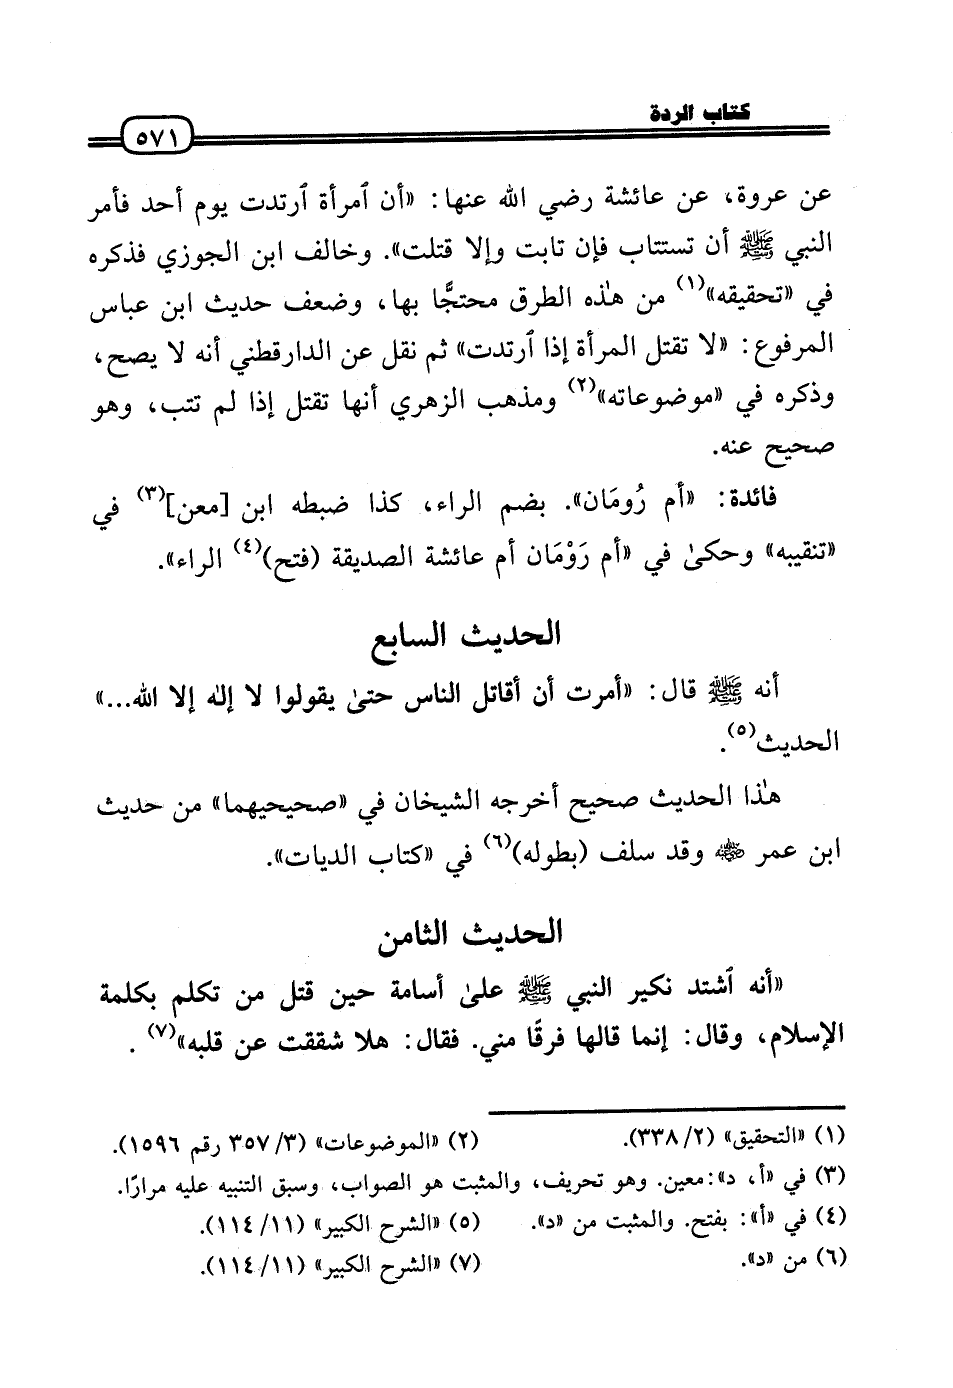 كتاب الردة
٥٧١
عن عروة، عن عائشة رضي الله عنها: «أن ٱمرأة ٱرتدت يوم أحد فأمر
النبي ﷺ أن تستتاب فإن تابت وإلا قتلت». وخالف ابن الجوزي فذكره
في «تحقيقه»(١) من هذه الطرق محتجًّا بها، وضعف حديث ابن عباس
المرفوع: «لا تقتل المرأة إذا ٱرتدت» ثم نقل عن الدارقطني أنه لا يصح،
وذكره في «موضوعاته»(٢) ومذهب الزهري أنها تقتل إذا لم تتب، وهو
صحيح عنه.
فائدة: «أم رُومَان». بضم الراء، كذا ضبطه ابن [معن](٣) في
«تنقيبه» وحكىٰ في «أم رَوْمَان أم عائشة الصديقة (فتح)(٤) الراء».
الحديث السابع
أنه ﷺ قال: «أمرت أن أقاتل الناس حتىٰ يقولوا لا إله إلا الله...»
الحديث(٥).
هذا الحديث صحيح أخرجه الشيخان في «صحيحيهما» من حديث
ابن عمر ﵁ وقد سلف (بطوله)(٦) في «كتاب الديات».
الحديث الثامن
«أنه ٱشتد نكير النبي ﷺ علىٰ أسامة حين قتل من تكلم بكلمة
الإسلام، وقال: إنما قالها فرقًا مني. فقال: هلا شققت عن قلبه»(٧) .
(١) «التحقيق» (٢/ ٣٣٨). (٢) «الموضوعات» (٣/ ٣٥٧ رقم ١٥٩٦).
(٣) في «أ، د»: معين. وهو تحريف، والمثبت هو الصواب، وسبق التنبيه عليه مرارًا.
(٤) في «أ»: بفتح. والمثبت من «د». (٥) «الشرح الكبير» (١١/ ١١٤).
(٦) من «د». (٧) «الشرح الكبير» (١١/ ١١٤).